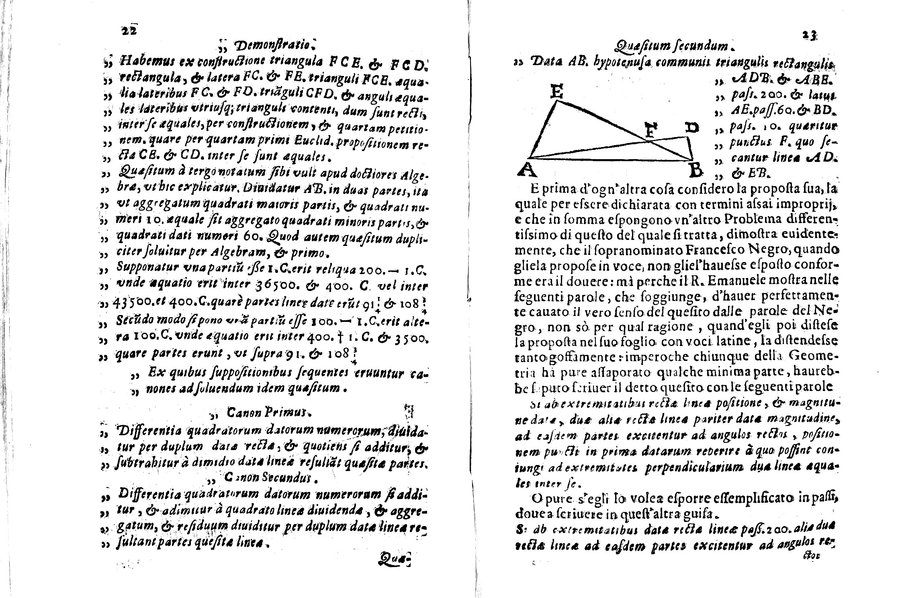 22
„ Demonſtratio.
„ Habemus ex conſtructione triangula FCE. & FCD.
„ rectangula, & latera FC. & FE. trianguli FCE. æqua-
„ lia lateribus FC. & FD. triãguli CFD. & anguli æqua-
„ les lateribus vtriuſq; trianguli contenti, dum ſunt recti,
„ inter ſe æquales, per conſtructionem, & quartam petitio-
„ nem. quare per quartam primi Euclid. propoſitionem re-
„ cta CE. & CD. inter ſe ſunt æquales.
„ Quæſitum à tergo notatum ſibi vult apud doctiores Alge-
„ bræ, vt hic explicatur. Diuidatur AB. in duas partes, ita
„ vt aggregatum quadrati maioris partis, & quadrati nu-
„ meri 10. æquale ſit aggregato quadrati minoris partis, &
„ quadrati dati numeri 60. Quod autem quæſitum dupli-
„ citer ſoluitur per Algebram, & primo.
„ Supponatur vna partiũ eſſe 1. C. erit reliqua 200. — 1. C.
„ vnde æquatio erit inter 36500. & 400. C vel inter
„ 43500. et 400. C. quarè partes lineæ date erũt 91 ¼ & 108 ¾
„ Secũdo modo ſi pono vnã partiũ eſſe 100. — 1. C. erit alte-
„ ra 100. C. vnde æquatio erit inter 400. † 1. C. & 3500.
„ quare partes erunt, vt ſupra 91. & 108 ¾
„ Ex quibus ſuppoſitionibus ſequentes eruuntur ca-
„ nones ad ſoluendum idem quæſitum.
„ Canon Primus.
„ Differentia quadratorum datorum numerorum, diuida-
„ tur per duplum datæ rectæ, & quotiens ſi additur, &
„ ſubtrahitur à dimidio datæ lineæ reſultãt quæſitæ partes.
„ Canon Secundus.
„ Differentia quadratorum datorum numerorum ſi addi-
„ tur, & adimitur à quadrato lineæ diuidendæ, & aggre-
„ gatum, & reſiduum diuiditur per duplum datæ lineæ re-
„ ſultant partes queſitæ lineæ.
Quæ-
23
Quæſitum ſecundum.
„ Data AB. hypotenuſa communis triangulis rectangulis
„ ADB. & ABE.
„ paſſ. 200. & latus
„ AE. paſſ. 60. & BD.
„ paſſ. 10. quæritur
„ punctus F. quo ſe-
„ cantur lineæ AD.
„ & EB.
E
F
D
A
B
E prima d'ogn'altra coſa conſidero la propoſta ſua, la
quale per eſſere dichiarata con termini aſſai improprij,
e che in ſomma eſpongono vn'altro Problema differen-
tiſſimo di queſto del quale ſi tratta, dimoſtra euidente-
mente, che il ſopranominato Franceſco Negro, quando
gliela propoſe in voce, non gliel'haueſſe eſpoſto confor-
me era il douere: mà perche il R. Emanuele moſtra nelle
ſeguenti parole, che ſoggiunge, d'hauer perfettamen-
te cauato il vero ſenſo del queſito dalle parole del Ne-
gro, non sò per qual ragione, quand'egli poi diſteſe
la propoſta nel ſuo foglio con voci latine, la diſtendeſſe
tanto goffamente: imperoche chiunque della Geome-
tria hà pure aſſaporato qualche minima parte, haureb-
be ſaputo ſcriuer il detto queſito con le ſeguenti parole
Si ab extremitatibus rectæ lineæ poſitione, & magnitu-
ne datæ, duæ aliæ rectæ lineæ pariter datæ magnitudine,
ad eaſdem partes excitentur ad angulos rectos, poſitio-
nem puncti in prima datarum reperire à quo poſſint con-
iungi ad extremitates perpendicularium duæ lineæ æqua-
les inter ſe.
O pure s'egli lo volea eſporre eſſemplificato in paſſi,
douea ſcriuere in queſt'altra guiſa.
Si ab extremitatibus datæ rectæ lineæ paſſ. 200. aliæ duæ
rectæ lineæ ad eaſdem partes excitentur ad angulos re-
ctos